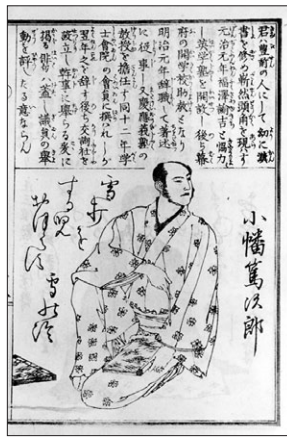 君ハ豊前の人にして幼に漢
書を修め嶄然頭角を現す
元治元年福沢諭吉と協力
し英学塾を開設す後ち幕
府の開成校助教となり
明治元年辞職して著述
に従事し又慶應義塾の
教授を擔任す同十二年学
士會院の會員に撰バれしが
翌年之を辞す後ち交詢社を
設立し幹事に擧らる爰に
掲る俳句ハ蓋し議員の擧
動を評したる意ならん
小幡篤次郎